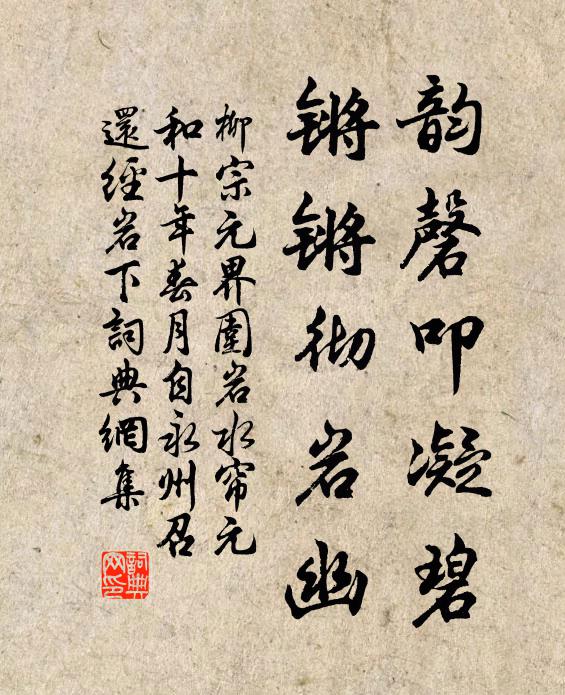 韵磬叩凝碧
锵锵彻岩幽
柳宗元界围岩水帘元
和十年春月自永州召
還經岩下詞典網集
詞典網印